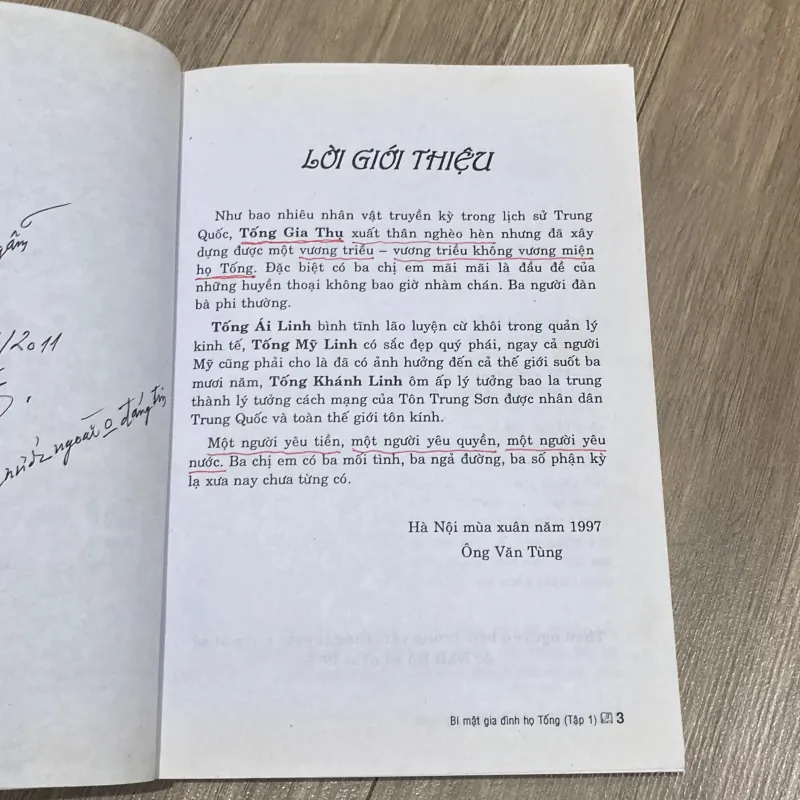 /2011
ngoài
LỜI GIỚI THIỆU
Như bao nhiêu nhân vật truyền kỳ trong lịch sử Trung
Quốc, Tống Gia Thụ xuất thân nghèo hèn nhưng đã xây
dựng được một vương triều – vương triều không vương miện
họ Tống. Đặc biệt có ba chị em mãi mãi là đầu đề của
những huyền thoại không bao giờ nhàm chán. Ba người đàn
bà phi thường.
Tống Ái Linh bình tĩnh lão luyện cừ khôi trong quản lý
kinh tế, Tống Mỹ Linh có sắc đẹp quý phái, ngay cả người
Mỹ cũng phải cho là đã có ảnh hưởng đến cả thế giới suốt ba
mươi năm, Tống Khánh Linh ôm ấp lý tưởng bao la trung
thành lý tưởng cách mạng của Tôn Trung Sơn được nhân dân
Trung Quốc và toàn thế giới tôn kính.
Một người yêu tiền, một người yêu quyền, một người yêu
nước. Ba chị em có ba mối tình, ba ngả đường, ba số phận kỳ
lạ xưa nay chưa từng có.
Hà Nội mùa xuân năm 1997
Ông Văn Tùng
Bí mật gia đình họ Tống (Tập 1) 3